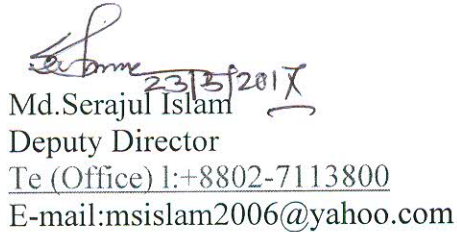 23/3/2017
Md.Serajul Islam
Deputy Director
Te (Office) l:+8802-7113800
E-mail:msislam2006@yahoo.com